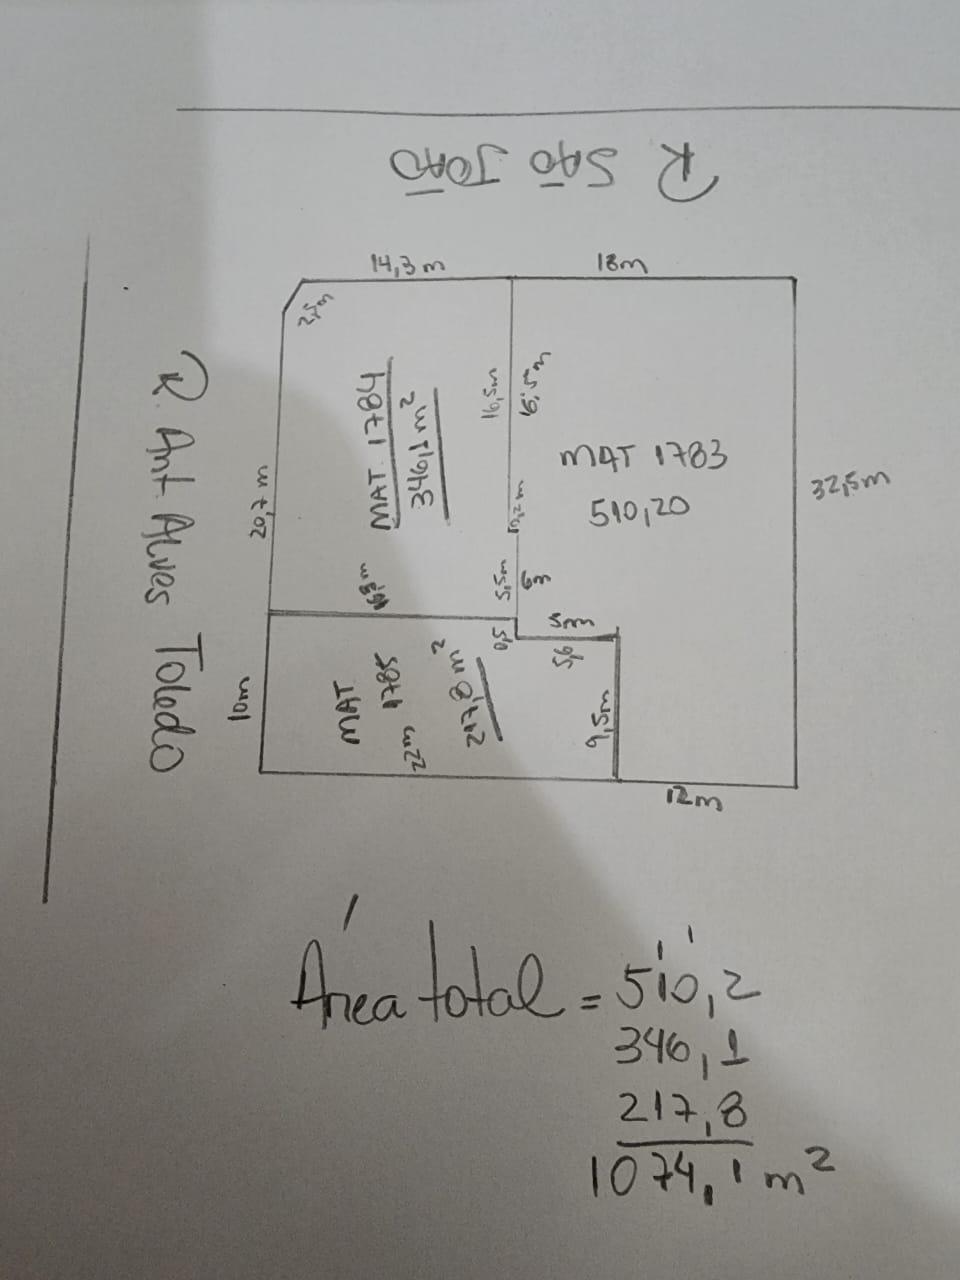 R SÃO JOÃO
14,3m
18m
2,5m
R. Ant. Alves Toledo
20,7m
MAT. 1784
346,1m²
16,5m
16,5m
0,2m
MAT 1783
510,20
32,5m
5,5m
63
0,5
5m
5,6
10m
MAT
1785
22m
217,8m²
9,5m
12m
Área total = 510,2
346,1
217,8
1074,1m²